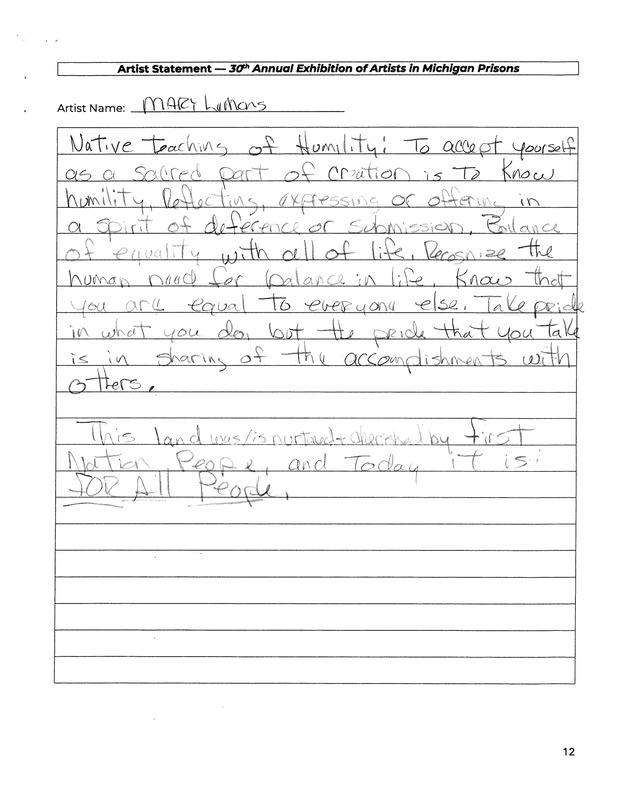 Artist Statement — 30th Annual Exhibition of Artists in Michigan Prisons
Artist Name: MARY Lumons
Native Teaching of Humility: To accept yourself
as a sacred part of creation is To Know
humility, Reflecting, expressing or offering in
a spirit of deference or submission. Balance
of equality with all of life. Recognize the
human need for balance in life. Know that
you are equal To everyone else. Take pride
in what you do, but the pride that you Take
is in sharing of the accomplishments with
others.
This land was/is nurtured + cherished by first
Nation People, and Today it is:
FOR All People.
12